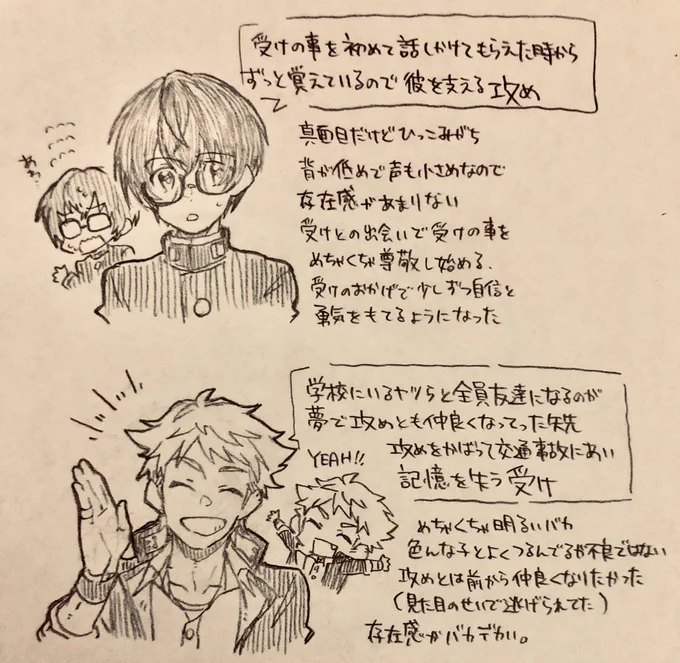 受けの事を初めて話しかけてもらえた時から
ずっと覚えているので彼を支える攻め
真面目だけどひっこみがち
背が低めで声も小さめなので
存在感があまりない
受けとの出会いで受けの事を
めちゃくちゃ尊敬し始める、
受けのおかげで少しずつ自信と
勇気をもてるようになった
あわ
学校にいるヤツらと全員友達になるのが
夢で攻めとも仲良くなってった矢先
攻めをかばって交通事故にあい
記憶を失う受け
YEAH!!
めちゃくちゃ明るいバカ
色んな子とよくつるんでるが不良ではない
攻めとは前から仲良くなりたかった
(見た目のせいで逃げられてた)
存在感がバカデカい。